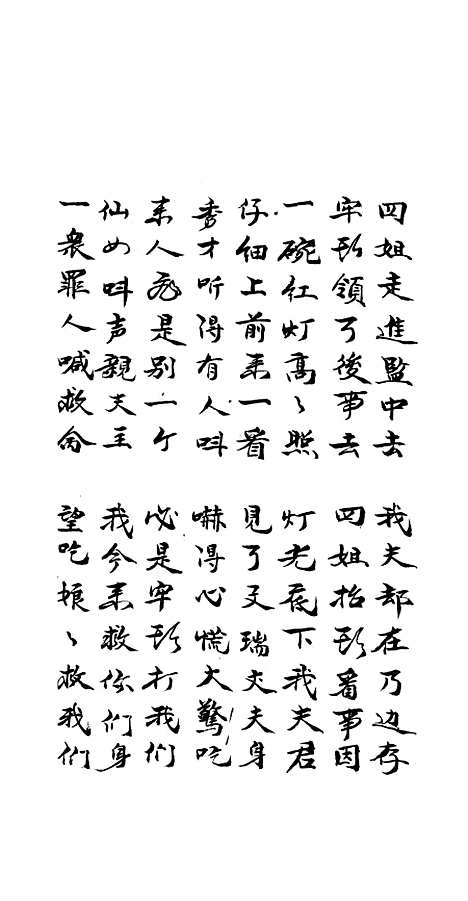 四姐走進監中去 我夫却在乃边存
牢头領了後事去 四姐抬头看事因
一碗紅灯高〻照 灯光底下我夫君
仔細上前来一看 見了文瑞丈夫身
秀才听得有人叫 嚇得心慌大驚吃
来人非是别一个 必是牢头打我们
仙女叫声親夫主 我今来救你们身
一衆罪人喊救命 望吃娘〻救我们